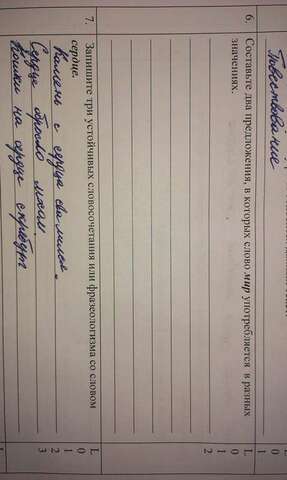 Повествование
L.
0
1
6. Составьте два предложения, в которых слово мир употребляется в разных
значениях.
L.
0
1
2
7. Запишите три устойчивых словосочетания или фразеологизма со словом
сердце.
Камень с сердца свалился.
Сердце обросло мхом
Кошки на сердце скребут
L.
0
1
2
3
L.